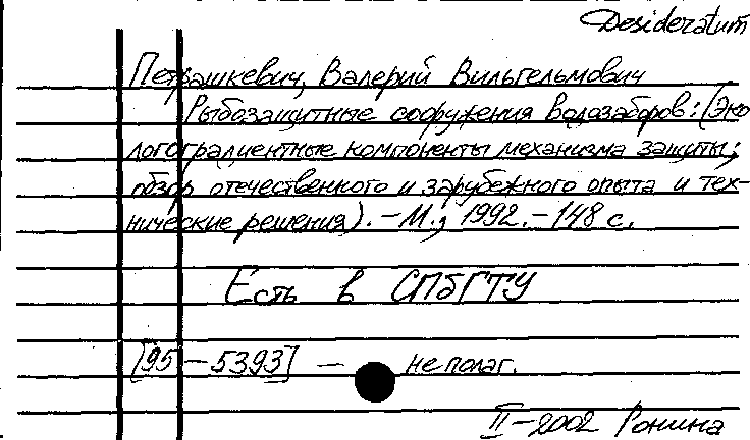 Desideratum
Петрашкевич, Валерий Вильгельмович
Рыбозащитные сооружения водозаборов: (Эко
логоградиентные компоненты механизма защиты;
обзор отечественного и зарубежного опыта и тех-
нические решения). - М., 1992. - 148 с.
Есть в СПбГТУ
[95-5393] — не полаг.
II-2002 Ронина